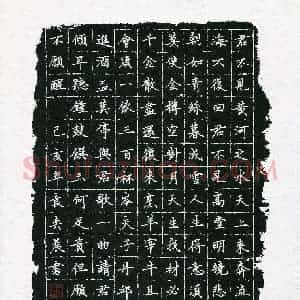 君不見黃河之水天上來奔流
海不復回君不見高堂明鏡悲
如青絲暮成雪人生得意須
莫使金樽空對月天生我材必
千金散盡還復來烹羊宰牛且
會須一飲三百杯岑夫子丹邱
進酒盃莫停與君歌一曲請君
傾耳聽鐘鼓饌玉何足貴但願
不願醒己亥